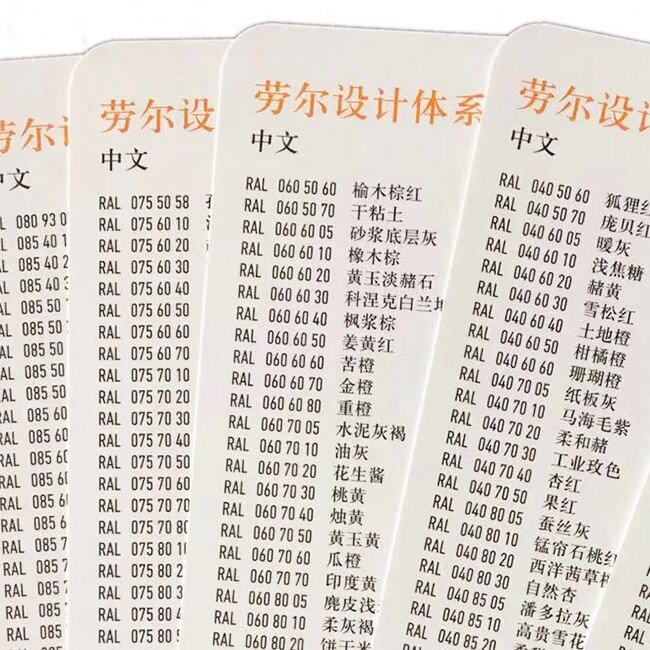 劳尔设
中文
080 93 0
085 40 1
085 40 2
085 40
085 50
085 50
085 50
RAL 085 50
RAL 085 50
RAL 085 60
RAL 085 60
RAL 085 60
RAL 085 60
RAL 085 6
RAL 085 6
RAL 085 7
RAL 085 7
RAL 085 7
RAL 085
RAL 085
劳尔设
中文
RAL 075 50 58
RAL 075 60 10
RAL 075 60 20
RAL 075 60 30
RAL 075 60 40
RAL 075 60 50
RAL 075 60 60
RAL 075 60 70
RAL 075 70 10
RAL 075 70 20
RAL 075 70 30
RAL 075 70 40
RAL 075 70 50
RAL 075 70 60
RAL 075 70 70
RAL 075 70 80
RAL 075 80 10
RAL 075 80 2
RAL 075 80 3
RAL 075 80 4
RAL 075 80 5
劳尔设计体系
中文
RAL 060 50 60 榆木棕红
RAL 060 50 70 干粘土
RAL 060 60 05 砂浆底层灰
RAL 060 60 10 橡木棕
RAL 060 60 20 黄玉淡赭石
RAL 060 60 30 科涅克白兰地
RAL 060 60 40 枫浆棕
RAL 060 60 50 姜黄红
RAL 060 60 60 苦橙
RAL 060 60 70 金橙
RAL 060 60 80 重橙
RAL 060 70 05 水泥灰褐
RAL 060 70 10 油灰
RAL 060 70 20 花生酱
RAL 060 70 30 桃黄
RAL 060 70 40 烛黄
RAL 060 70 50 黄玉黄
RAL 060 70 60 瓜橙
RAL 060 70 70 印度黄
RAL 060 80 05 麂皮浅
RAL 060 80 10 柔灰褐
RAL 060 80 20 饼干米
劳尔设计
中文
RAL 040 50 60 狐狸红
RAL 040 50 70 庞贝红
RAL 040 60 05 暖灰
RAL 040 60 10 浅焦糖
RAL 040 60 20 赭黄
RAL 040 60 30 雪松红
RAL 040 60 40 土地橙
RAL 040 60 50 柑橘橙
RAL 040 60 60 珊瑚橙
RAL 040 70 05 纸板灰
RAL 040 70 10 马海毛紫
RAL 040 70 20 柔和赭
RAL 040 70 30 工业玫色
RAL 040 70 40 杏红
RAL 040 70 50 果红
RAL 040 80 05 蚕丝灰
RAL 040 80 10 锰帘石桃红
RAL 040 80 20 西洋茜草橙
RAL 040 80 30 自然杏
RAL 040 85 05 潘多拉灰
RAL 040 85 10 高贵雪花
RAL 040 85 20